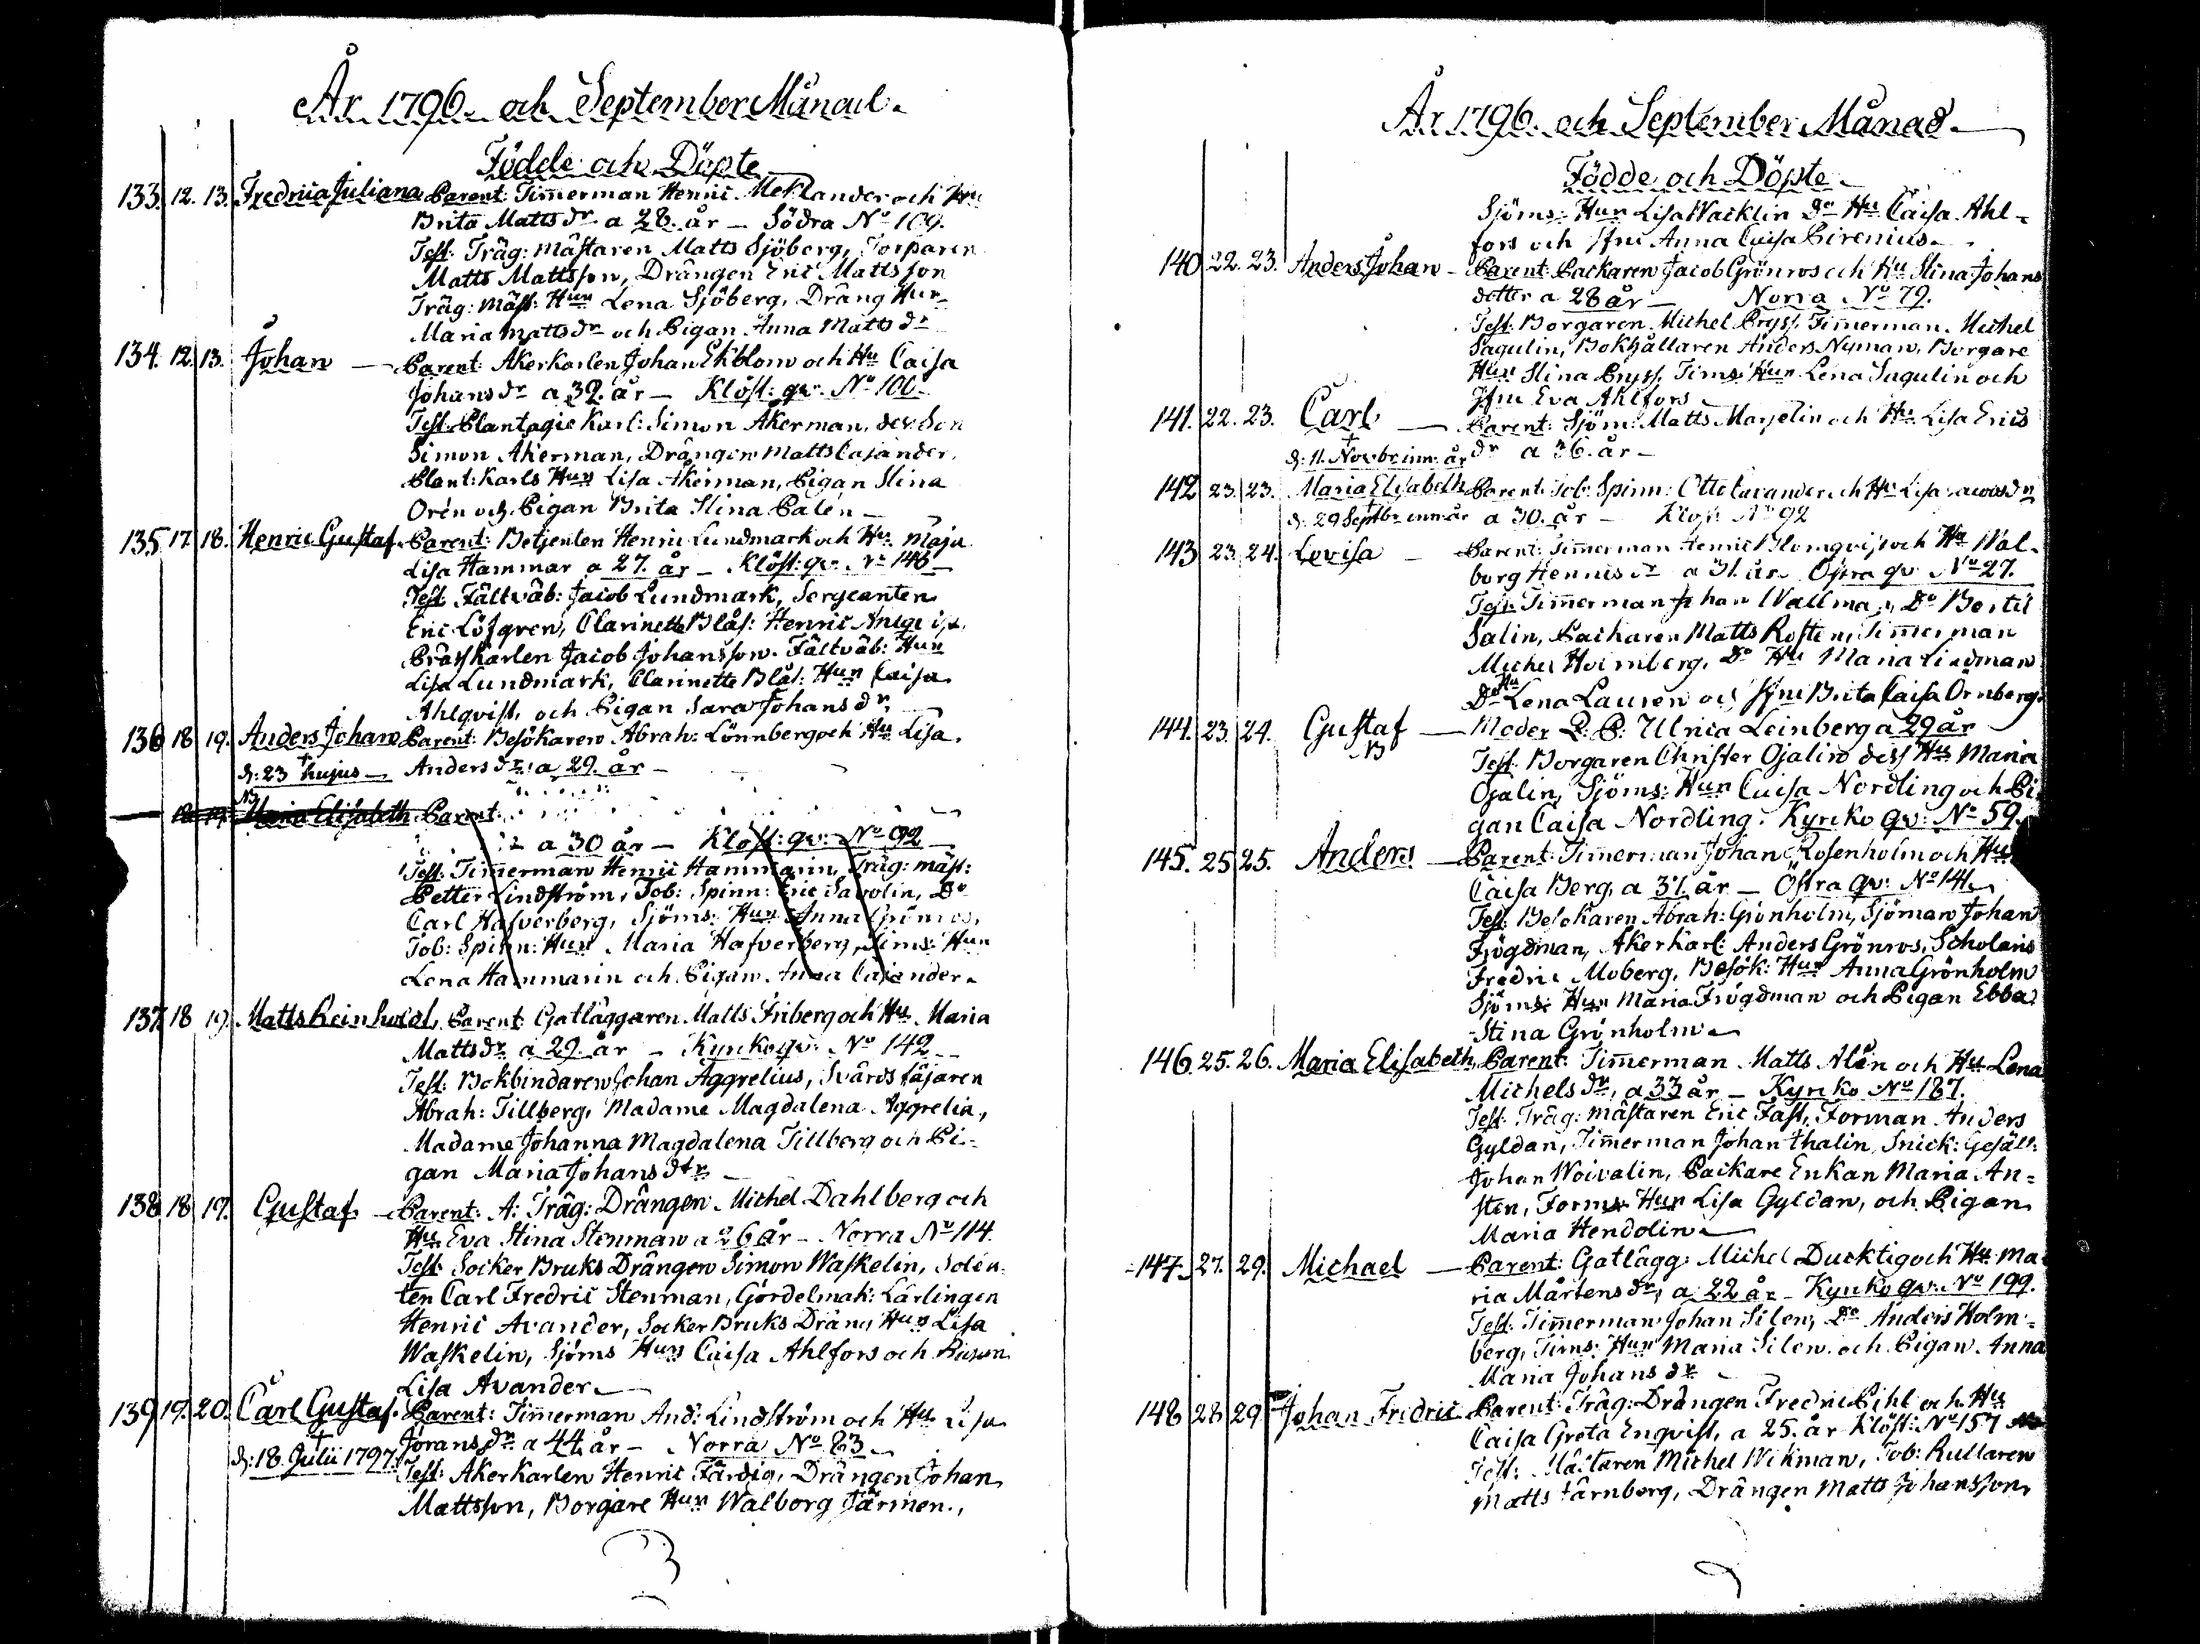 År 1796. och September Månad.
Födde och Döpte
133. 12. 13. Fredrica Juliana Parent: Timmerman Henric Meklander och Hu
Brita Matts dr a 28. år – Södra No 109.
Test: Träg: mästaren Matts Sjöberg, Torparen
Matts Mattsson, Drängen Eric Mattsson
Träg: mäst: Hun Lena Sjöberg, Dräng Hun
Maria Matts dr och Pigan Anna Matts dr
134. 12. 13. Johan – Parent: Åkerkarlen Johan Ekblom och Hu Caisa
Johans dr a 32. år – Klöst: qv: No 100.
Test: Plantagie Karl: Simon Åkerman, des Son
Simon Åkerman, Drängen Matts Cajander,
Plant: Karls Hun Lisa Åkerman, Pigan Stina
Orén och Pigan Brita Stina Palén –
135 17. 18. Henric Gustaf. Parent: Betjenten Henric Lundmark och Hu Maja
Lisa Hammar a 27. år – Klöst: qv: No 146 –
Test Fältväb: Jacob Lundmark, Sergeanten
Eric Löfgren, Clarinette Blås: Henric
Karlen Jacob Johansson. Fältväb: Hun
Lisa Lundmark, Clarinette Blås: Hun Caisa
Ahlqvist, och Pigan Sara Johans dr,
136 18 19. Anders Johan Parent: Besökaren Abrah: Lönnberg och Hu Lisa
d: 23 hujus – Anders dr a 29. år –
18 19. Maria Elisabeth Parent:
a 30 år – Klöst: qv: No 92
Test: Timmerman Henric Hammarin, Träg: mäst:
Petter Lindström, Tob: Spinn: Eric Savolin, Do
Carl Hafverberg, Sjöms: Hun Anna Grönros,
Tob: Spinn: Hun Maria Hafverberg, Tims: Hun
Lena Hammarin och Pigan Anna Cajander.
137. 18 19. Matts Reinhold, Parent: Gatläggaren Matts Friberg och Hu Maria
Matts dr a 29. år – Kyrko qv: No 142
Test: Bokbindaren Johan Aggrelius, Svärdsfäjaren
Abrah: Tillberg, Madame Magdalena Aggrelia,
Madame Johanna Magdalena Tillberg och Pi-
gan Maria Johans dtr –
138 18 19. Gustaf – Parent: A: Träg: Drängen Michel Dahlberg och
Hu Eva Stina Stenman a 26 år – Norra No 114.
Test: Socker Bruks Drängen Simon Waskelin,
Carl Fredric Stenman, Gördelmak: Lärlingen
Henric Avander, Socker Bruks Dräng Hun Lisa
Waskelin, Sjöms Hun Caisa Ahlfors och Pigan
Lisa Avander –
139 19. 20. Carl Gustaf. Parent: Timmerman And: Lindström och Hu Lisa
Jörans dr a 44. år – Norra No 83.
d: 18. Julii 1797. Test: Åkerkarlen Henric Färdig, Drängen Johan
Mattsson, Borgare Hun Walborg Järmen.,
År 1796. och September Månad.
Födde och Döpte
Sjöms: Hun Lisa Wacklin Do Hu Caisa Ahl-
fors och Jfru Anna Caisa Cirenius.
140 22. 23. Anders Johan – Parent: Packaren Jacob Grönros och Hu Stina Johans
dotter a 28 år – Norra No 79.
Test: Borgaren Michel Pryss, Timmerman Michel
Sagulin, Bokhållaren Anders Nyman, Borgare
Hun Stina Pryss, Tims: Hun Lena Sagulin och
Jfru Eva Ahlfors
141. 22. 23. Carl – Parent: Sjöm: Matts Marselin och Hu Lisa Erics
d: 11. Novbr inn: år dr a 36. år –
142 23. 23. Maria Elisabeth Parent: Tob: Spinn: Otto och Hu Lisa
d: 29 Septbr inn: år a 30. år – Klost: No 92
143 23 24. Lovisa – Parent: Timmerman Henric Blomqvist och Hu Wal-
borg Henrics dr a 31. år. Östra qv: No 27.
Test: Timmerman Johan Wallman, Do Bertil
Salin, Packaren Matts Rosten, Timmerman
Michel Holmberg, Do Hu Maria Lindman
Do Hu Lena Lauren och Jfru Brita Caisa Örnberg.
144. 23. 24. Gustaf – Moder L: P: Ulrica Leinberg a 29 år
Test: Borgaren Christer Ojalin dess Hu Maria
Ojalin, Sjöms: Hun Caisa Nordling och Pi-
gan Caisa Nordling. Kyrko qv: No 59.
145. 25 25. Anders – Parent: Timmerman Johan Rosenholm och Hu
Caisa Berg, a 31. år – Östra qv: No 141.
Test: Besökaren Abrah: Grönholm, Sjöman Johan
Frögdman, Åkerkarl: Anders Grönros, Scholaris
Fredric Moberg, Besök: Hun Anna Grönholm
Sjöms: Hun Maria Frögdman och Pigan Ebba
Stina Grönholm –
146. 25. 26. Maria Elisabeth, Parent: Timmerman Matts Alén och Hu Lena
Michels dr, a 33 år – Kyrko No 187.
Test: Träg: mästaren Eric Fast, Forman Anders
Gyldan, Timmerman Johan Thalin, Snick: Gesäll:
Johan Woivalin, Packare Enkan Maria An=
sten, Forms: Hun Lisa Gyldan, och Pigan
Maria Hendolin –
147. 27. 29. Michael – Parent: Gatlägg: Michel Ducktig och Hu Ma-
ria Mårtens dr, a 22 år – Kyrko qv: No 199.
Test: Timmerman Johan Silen, Do Anders Holm-
berg, Tims: Hun Maria Silen och Pigan Anna
Maria Johans dr
148 28 29 Johan Fredric Parent: Träg: Drängen Fredric Pihl och Hu
Caisa Greta Enqvist, a 25. år Klöst: No 157
Test: Mästaren Michel Wikman, Tob: Rullaren
Matts Färnberg, Drängen Matts Johansson,